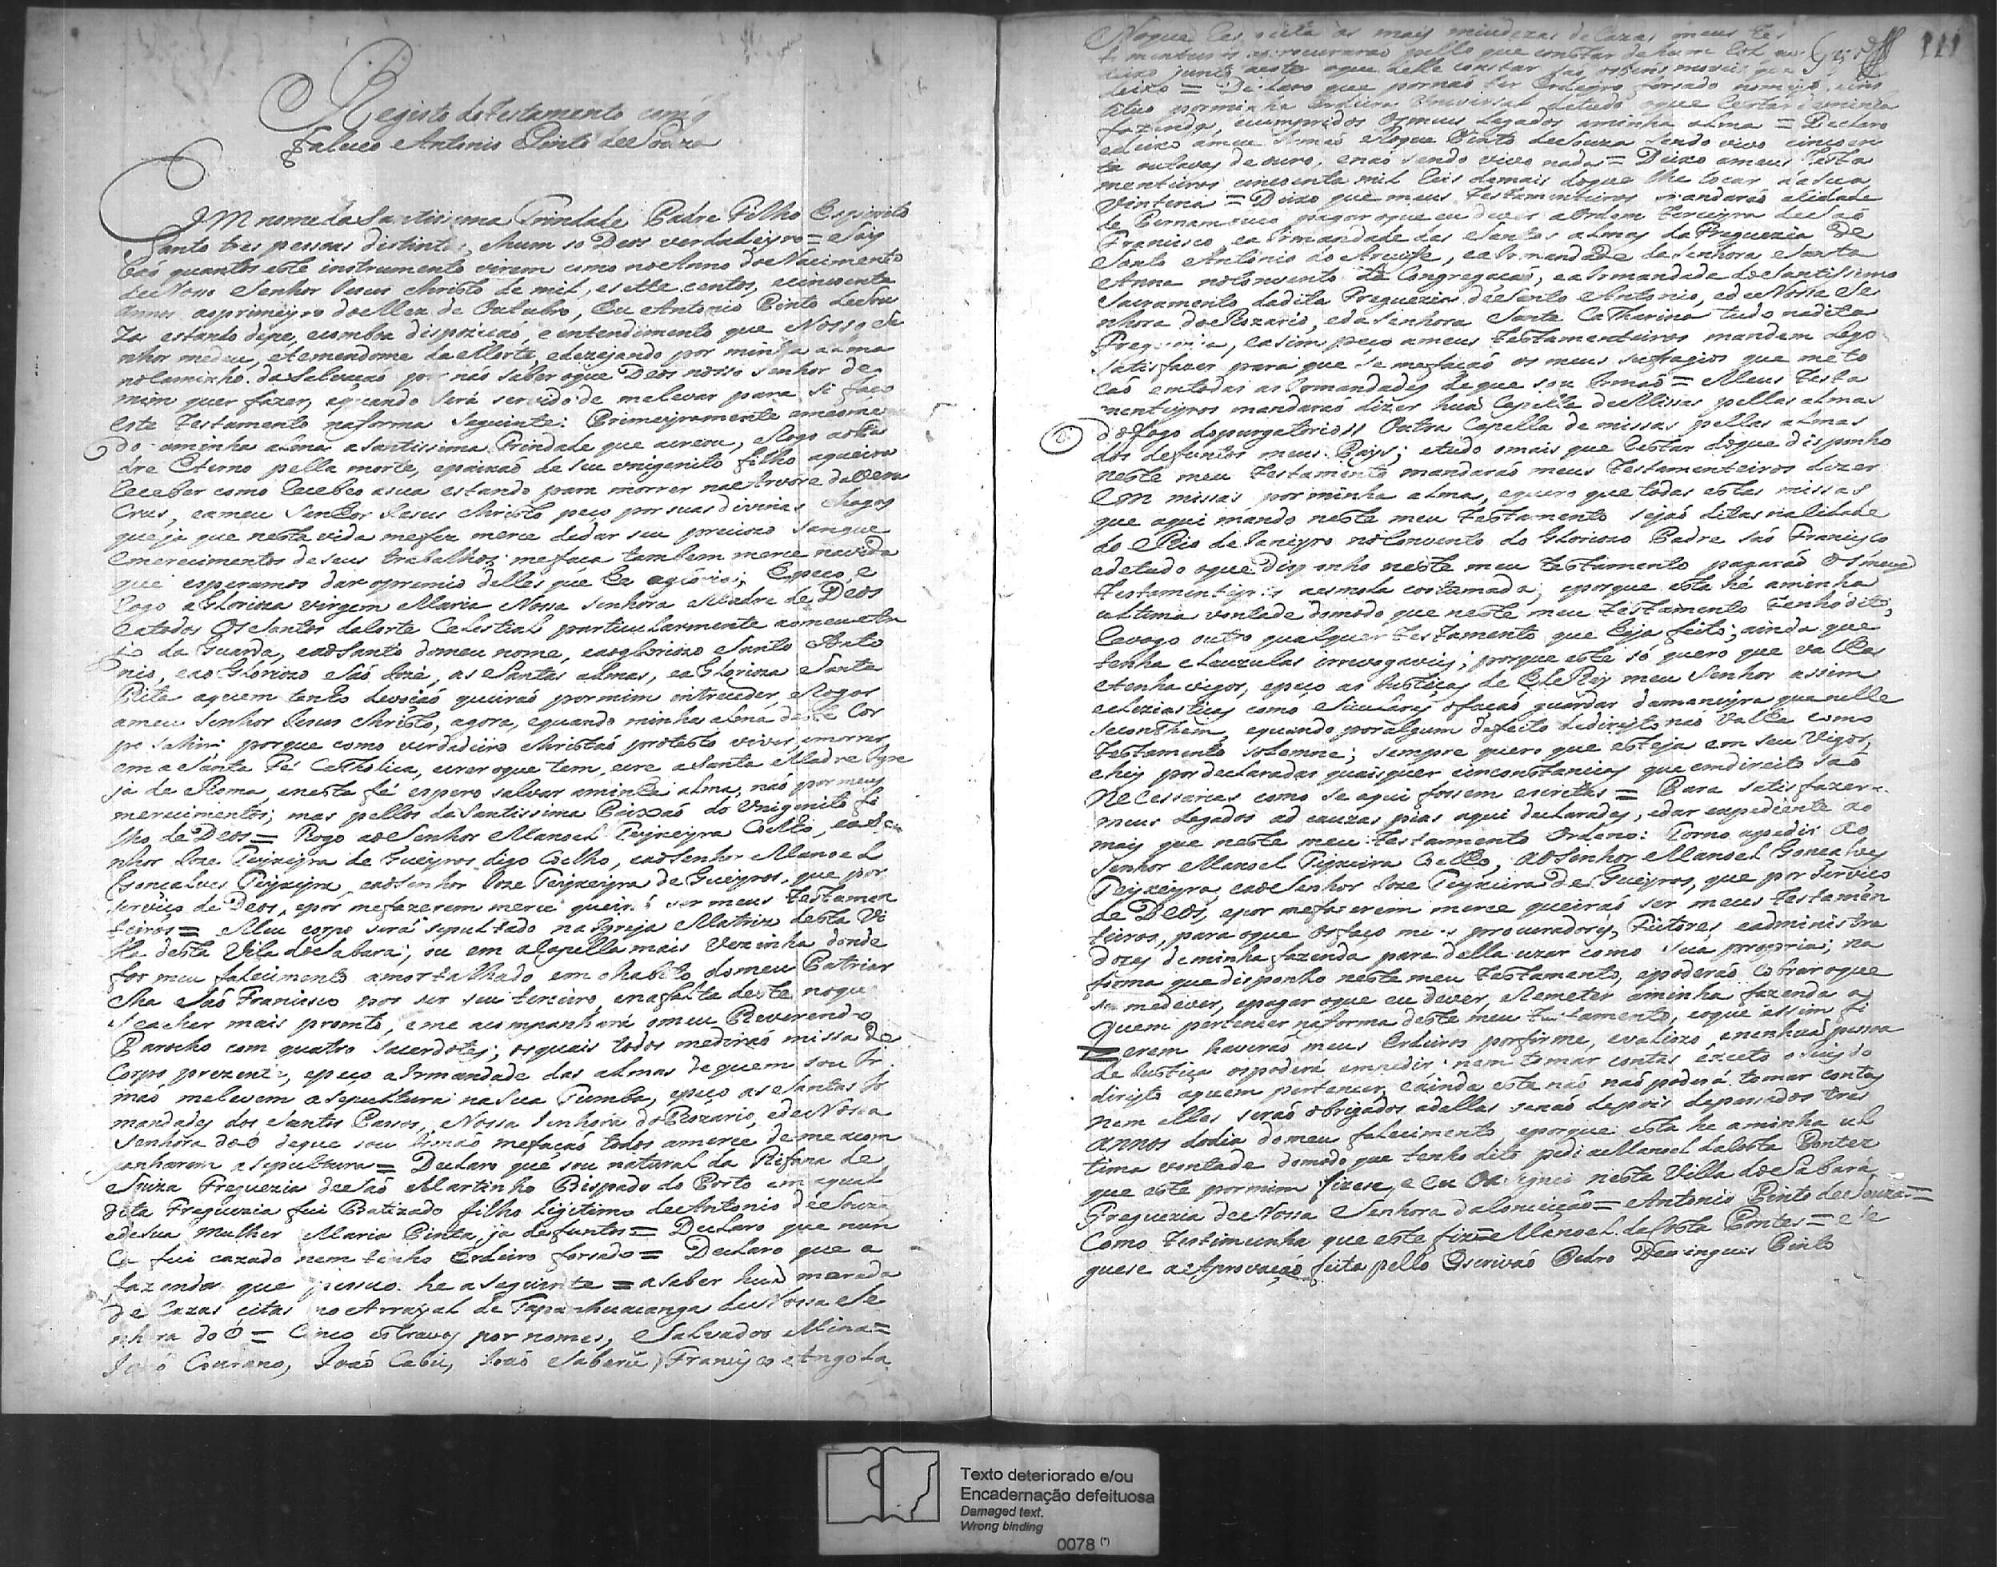 Registo do Testamento com q̃
Faleceo Antonio Pinto de Souza
EM nome da Santissima Trindade Padre Filho Espirito
Santo tres pessoas distintas, ehum so Deos verdadeyro = Say
baõ quantos este instrumento virem como no Anno do Nacimento
de Nosso Senhor Iesus Christo de mil, esette centos, ecincoenta
annos aoprimeyro do Mez de Outubro, Eu Antonio Pinto deSou
za estando depe, ecomboa dispoziçaõ, e entendimento que Nosso Se
nhor medeu, etemendome da Morte, edezejando por minha alma
noCaminho da Salvaçaõ por naõ saber oque Deos nosso senhor de
mim quer fazer, equando será servido de melevar para si faço
este Testamento naforma Seguinte: Primeyramente emcomen
do aminha alma aSantissima Trindade que acreou, eRogo aoPa
dre Eterno pella morte, epaixaõ de seu vnigenito filho aqueira
Receber como Recebeo asua estando para morrer na Arvore daVera
Crus, eameu Senhor Iesus Christo peço por suas divinas Chagas
queja que nesta vida mefez merce dedar seu precioso sangue
emerecimentos de seus trabalhos mefaça tambem merce navida
que esperamos dar opremio delles que he agloria; Epeço, e
Rogo aGlorioza virgem Maria Nossa senhora eMadre de Deos
eatodos Os Santos daCorte Celestial particularmente aomeu An
jo da Guarda, eaoSanto domeu nome, eaogloriozo Santo Anto
nio, eao Gloriozo Saõ Iozé, as Santas almas, eaGlorioza Santa
Rita aquem tenho devoçaõ queiraõ pormim entreceder, eRogar
ameu Senhor Iesus Christo, agora, equando minha alma deste Cor
po sahir; porque como verdadeiro Christaõ protesto viver, emorrer
em a Santa Fé Catholica, ecrer oque tem, ecre a Santa Madre Igre
ja de Roma, enesta fé espero salvar aminha alma, naõ por meus
merecimentos; mas pellos daSantissima Paixaõ do Vnigenito fi
lho de Deos = Rogo aoSenhor Manoel Teyxeyra Coelho, eaoSe
nhor Ioze Teyxeyra de Gueyros digo Coelho, eaoSenhor Manoel
Gonçalves Teyxeyra, eaoSenhor Ioze Teyxeyra de Gueyros, que por
serviço de Deos, epor mefazerem merce queiraõ ser meus testamen
teiros = Meu corpo será sepultado na Igreja Matriz desta Vi
lla desta Vila doSabara; ou em aCapella mais vezinha donde
for meu falecimento amortalhado em ohabito domeu Patriar
cha Saõ Francisco por ser seu terceiro, enafalta deste noque
seacher mais pronto, eme acompanhará omeu Reverendo
Parocho com quatro sacerdotes; osquais todos mediraõ missa de
Corpo prezente, epeço aIrmandade das almas dequem sou Ir
maõ melevem asepultura naSua Tumba, epeço as Santas Ir
mandades dos Santos Passos, Nossa Senhora doRozario, edeNossa
Senhora doÓ deque sou Irmaõ mefaçaõ todos amerce demeacom
panharem asepultura = Declaro que sou natural da Rifana de
Suiza Freguezia deSaõ Martinho Bispado do Porto em aqual
dita Freguezia fui Batizado filho Ligitimo deAntonio deSouza
edesua mulher Maria Pinta, ja defuntos = Declaro que nun
Ca fui cazado nem tenho Erdeiro forsado = Declaro que a
fazenda que possuo he aseguinte = asaber huã morada
de Cazas citas no Arrayal de Tapanhuacanga deNossa Se
nhora do Ó = Cinco escravos por nomes, Salvador Mina =
Ioaõ Courano, Ioaõ Cabû, Ioaõ Saberû, Francisco Angola
111
Noque Res peita as mais miudezas deCaza meus tes
tamenteiros procuraraõ pello que constar dehum Rol que
deixo junto aeste oque delle constar saõ osbens moveis que
deixo = Declaro que pornaõ ter Erdeyro forsado nomeyo eins
tituo porminha Erdeira Vniversal detudo oque Restar daminha
fazenda, ecumpridos osmeus Legados aminha alma = Declaro
edeixo ameu Irmaõ Roque Pinto deSouza sendo vivo cincoen
ta outavas de ouro, enaõ sendo vivo nada = Deixo ameus Testa
menteiros cincoenta mil Reis demais doque lhe tocar dasua
Vintena = Deixo que meus Testamenteiros mandaraõ aCidade
de Pernambuco pagar oque eu dever aOrdem Terceyra deSaõ
Francisco, eaIrmandade das Santas almas da Freguezia de
Santo Antonio do Arrecife, eaIrmandade de Senhora Santa
Anna noConvento da Congregaçaõ, eaIrmandade doSantissimo
Sacramento dadita Freguezia deSanto Antonio, edeNossa Se
nhora doRozario, edaSenhora Santa Catharina tudo nadita
Freguezia, easim peço ameus testamenteiros mandem Logo
Satisfazer para que se mefaçaõ os meus sufragios que meto
caõ emtodas as Irmandades deque sou Irmaõ = Meus testa
menteyros mandaraõ dizer huã Capella deMissas pellas almas
doFogo dopurgatorio Outra Capella de missas pellas almas
dos defuntos meus Pays; etudo omais que Restar doque disponho
neste meu Testamento mandaraõ meus Testamenteiros dizer
Em missas porminha alma, equero que todas estas missas
que aqui mando neste meu Testamento sejaõ ditas naCidade
do Rio de Ianeyro noConvento do Gloriozo Padre Saõ Francisco
edetudo oque disponho neste meu testamento pagaraõ Os meus
testamenteyros aesmola costumada; eporque esta hé aminha
ultima vontade domodo que neste meu testamento tenho dito;
Revogo outro qualquer testamento que haja feito; ainda que
tenha clauzulas irrevogaveis; porque este só quero que valha
etenha vigor, epeço as Iustiças de ElRey meu Senhor assim
ecleziasticas como Siculares ofaçaõ guardar damaneyra que nelle
seconthem, equando poralgum defeito dedireyto naõ Valha como
testamento solemne; sempre quero que esteja em seu vigor,
ehey pordeclaradas quaisquer circonstancias que emdireito saõ
Necessarias como se aqui fossem escritas = Para satisfazer
meus Legados ad cauzas pias aqui declarados, edar expediente ao
mais que neste meu testamento Ordeno: Torno apedir ao
Senhor Manoel Teyxeira Coelho, aoSenhor Manoel Goncalves
Teyxeyra eaoSenhor Ioze Teyxeira De Gueyros, que por serviço
de Deos, epor mefazerem merce queiraõ ser meus testamen
teiros, para oque osfaço meus procuradores, Tutores eadministra
dores deminha fazenda para della uzar como sua propria; na
forma que disponho neste meu testamento, epoderaõ Cobrar oque
se medever, epagar oque eu dever, eRemeter aminha fazenda a
quem pertenser naforma deste meu testamento, eoque assim fi
zerem haveraõ meus Erdeiros porfirme, evaliozo enenhuã pesoa
de Iustiça ospoderá empedir nem tomar contas exceto oIuis do
direyto aquem pertencer, eainda este naõ naõ poderá tomar contas
nem elles seraõ obrigados adellas senaõ depois depasados tres
annos dodia domeu falecimento eporque esta he aminha ul
tima vontade domodo que tenho dito pedi aManoel daCosta Pontes
que este pormim fizese, e eu Oasignei nesta Villa do Sabará
Freguezia deNossa Senhora daConceiçaõ = Antonio Pinto deSouza =
Como testimunha que este fiz = Manoel da Costa Pontes = eSe
guese aAprovaçaõ feita pello Escrivaõ Pedro Domingues Pinto
Texto deteriorado e/ou
Encadernação defeituosa
Damaged text.
Wrong binding
0078 (*)